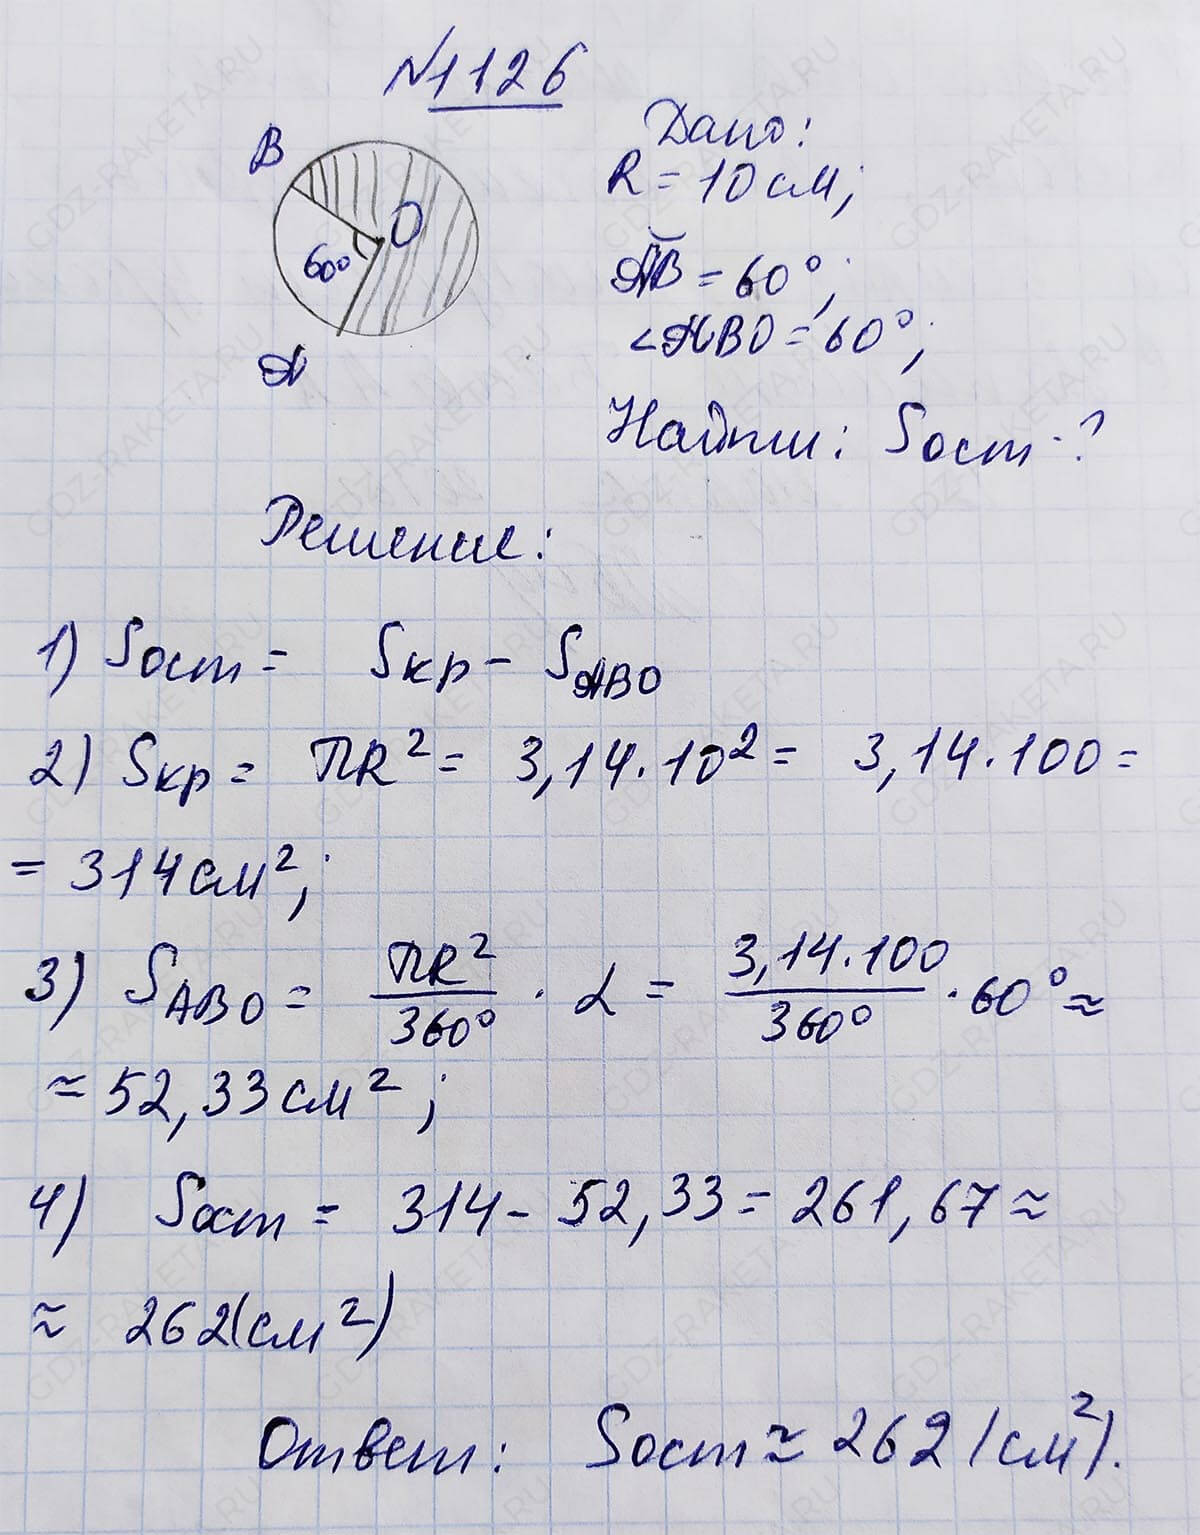 №1126
B
O
60°
A
Дано:
R = 10 см;
AB = 60°;
∠ABO = 60°;
Найти: Sост - ?
Решение:
1) Sост = Sкр - SABO
2) Sкр = πR² = 3,14·10² = 3,14·100 =
= 314 см²;
3) SABO = πR²/360° · α = 3,14·100/360° · 60° ≈
≈ 52,33 см²;
4) Sост = 314 - 52,33 = 261,67 ≈
≈ 262(см²)
Ответ: Sост ≈ 262 (см²).
GDZ-RAKETA.RU